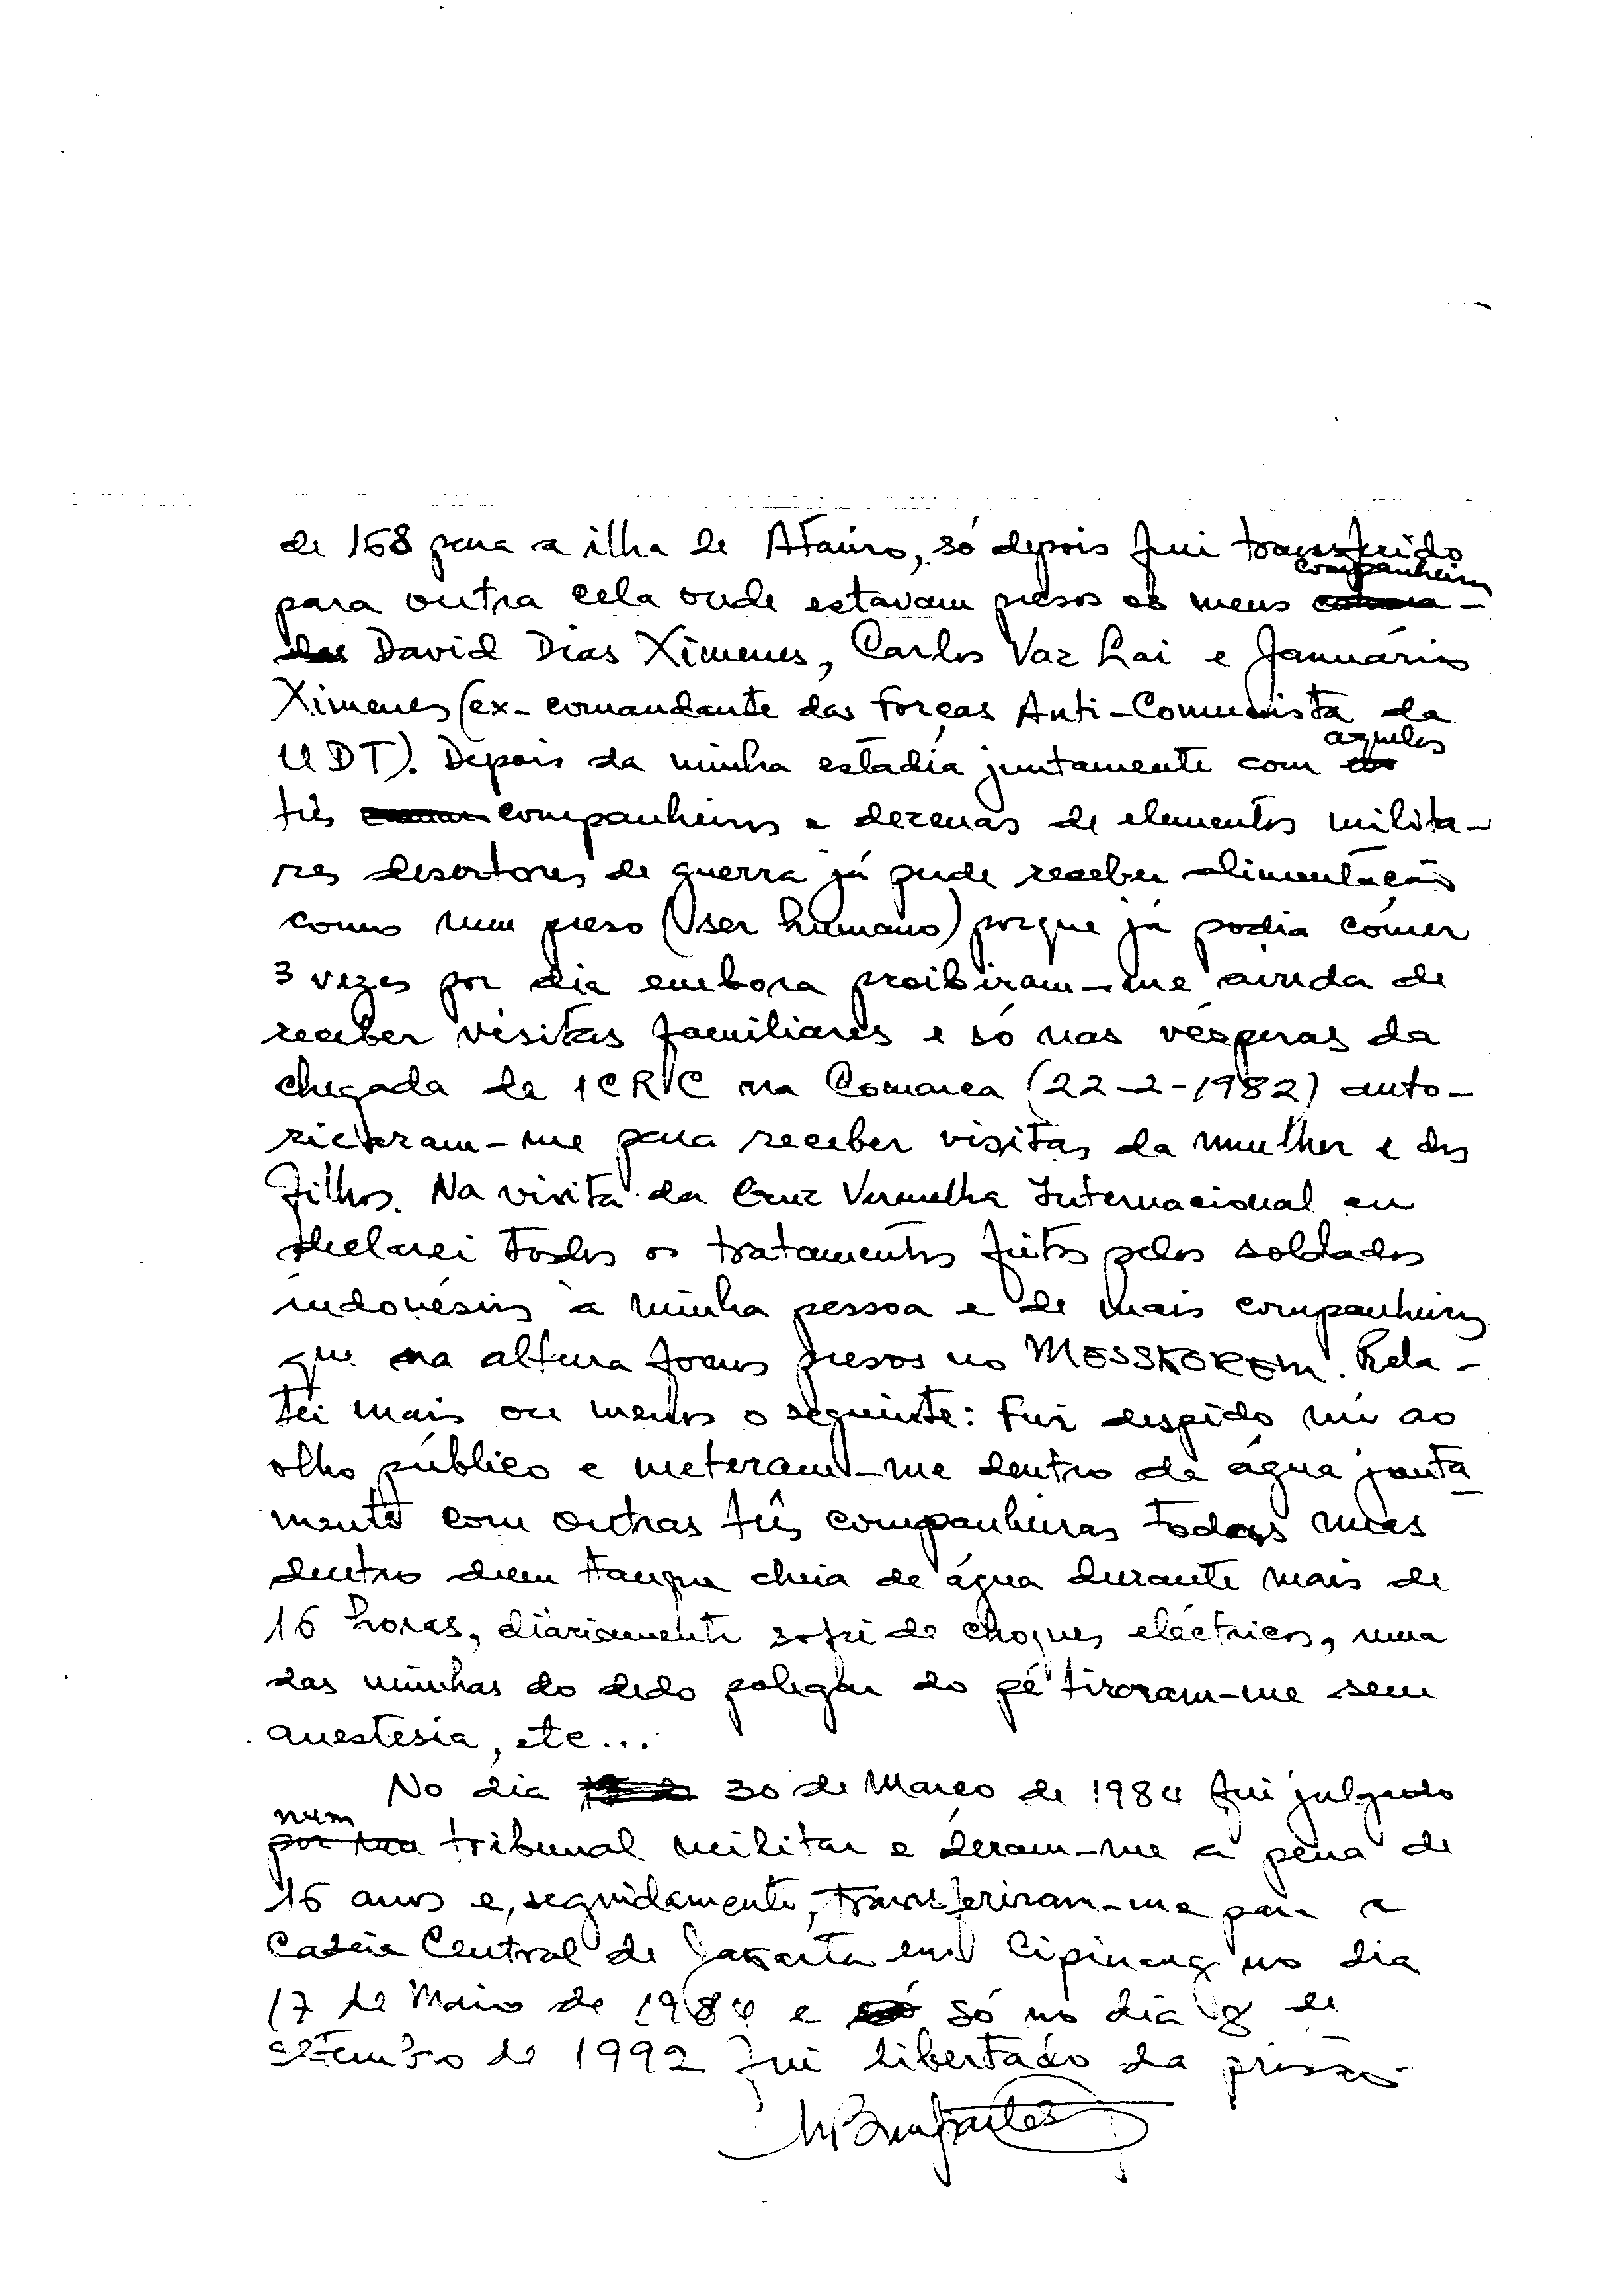 de 168 para a ilha de Ataúro, só depois fui transferido
companheiros
para outra cela onde estavam presos os meus
David Dias Ximenes, Carlos Vaz Lai e Januário
Ximenes (ex-comandante das Forças Anti-Comunista da
aqueles
UDT). Depois da minha estadia juntamente com
três companheiros e dezenas de elementos milita-
res desertores de guerra já pude receber alimentação
como um preso (ser humano) porque já podia comer
3 vezes por dia embora proibiram-me ainda de
receber visitas familiares e só nas vésperas da
chegada de ICRC na Comarca (22-2-1982) auto-
rizaram-me para receber visitas da mulher e dos
filhos. Na visita da Cruz Vermelha Internacional eu
declarei todos os tratamentos feitos pelos soldados
indonésios à minha pessoa e de mais companheiros
que na altura fomos presos no MESSKOREM. Rela-
tei mais ou menos o seguinte: Fui despido nú ao
olho público e meteram-me dentro da água junta
mente com outras três companheiras todas nuas
dentro dum tanque cheia de água durante mais de
16 horas, diáriamente sofri de choques eléctricos, uma
das minhas do dedo polegar do pé tiraram-me sem
anestesia, etc...
No dia 30 de Março de 1984 fui julgado
num
tribunal militar e deram-me a pena de
16 anos e, seguidamente, transferiram-me para a
Cadeia Central de Jakarta em Cipinang no dia
17 de Maio de 1984 e só no dia 8 de
setembro de 1992 fui libertado da prisão